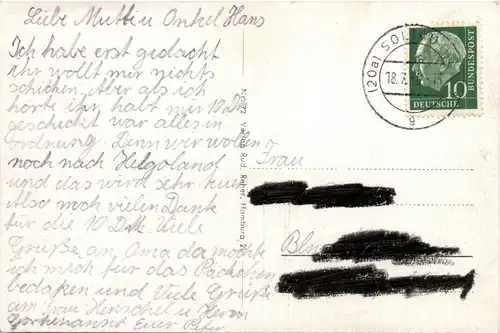 Liebe Mutti u Onkel Hans
Ich habe erst gedacht
ihr wollt mir nichts
schicken, aber als ich
hörte ihr habt mir 10 DM
geschickt war alles in
ordnung. Denn wir wollen
noch nach Helgoland
und das wird sehr
Also noch vielen Dank
für die 10 DM. Viele
Grüße an Oma da möchte
ich mich für das Päckchen
bedaken und Viele Grüße
am Frau Henschel u Herrn
Euer Peter
Verlag Rud. Reher, Hamburg 21
(20a) SOL
18.7.
g
DEUTSCHE
BUNDESPOST
10
Frau
Bln